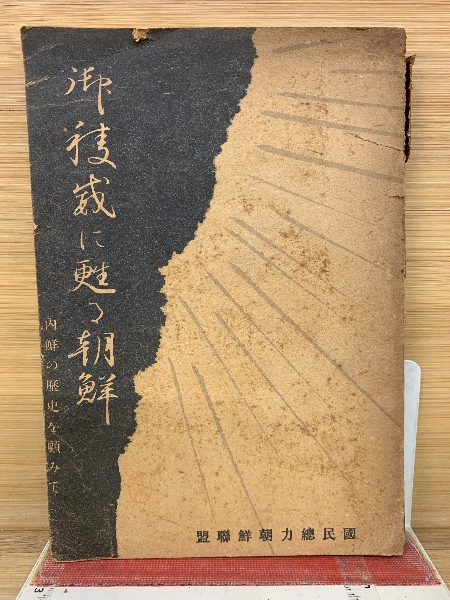 御稜威に甦る朝鮮
内鮮の歴史を顧みて
國民總力朝鮮聯盟